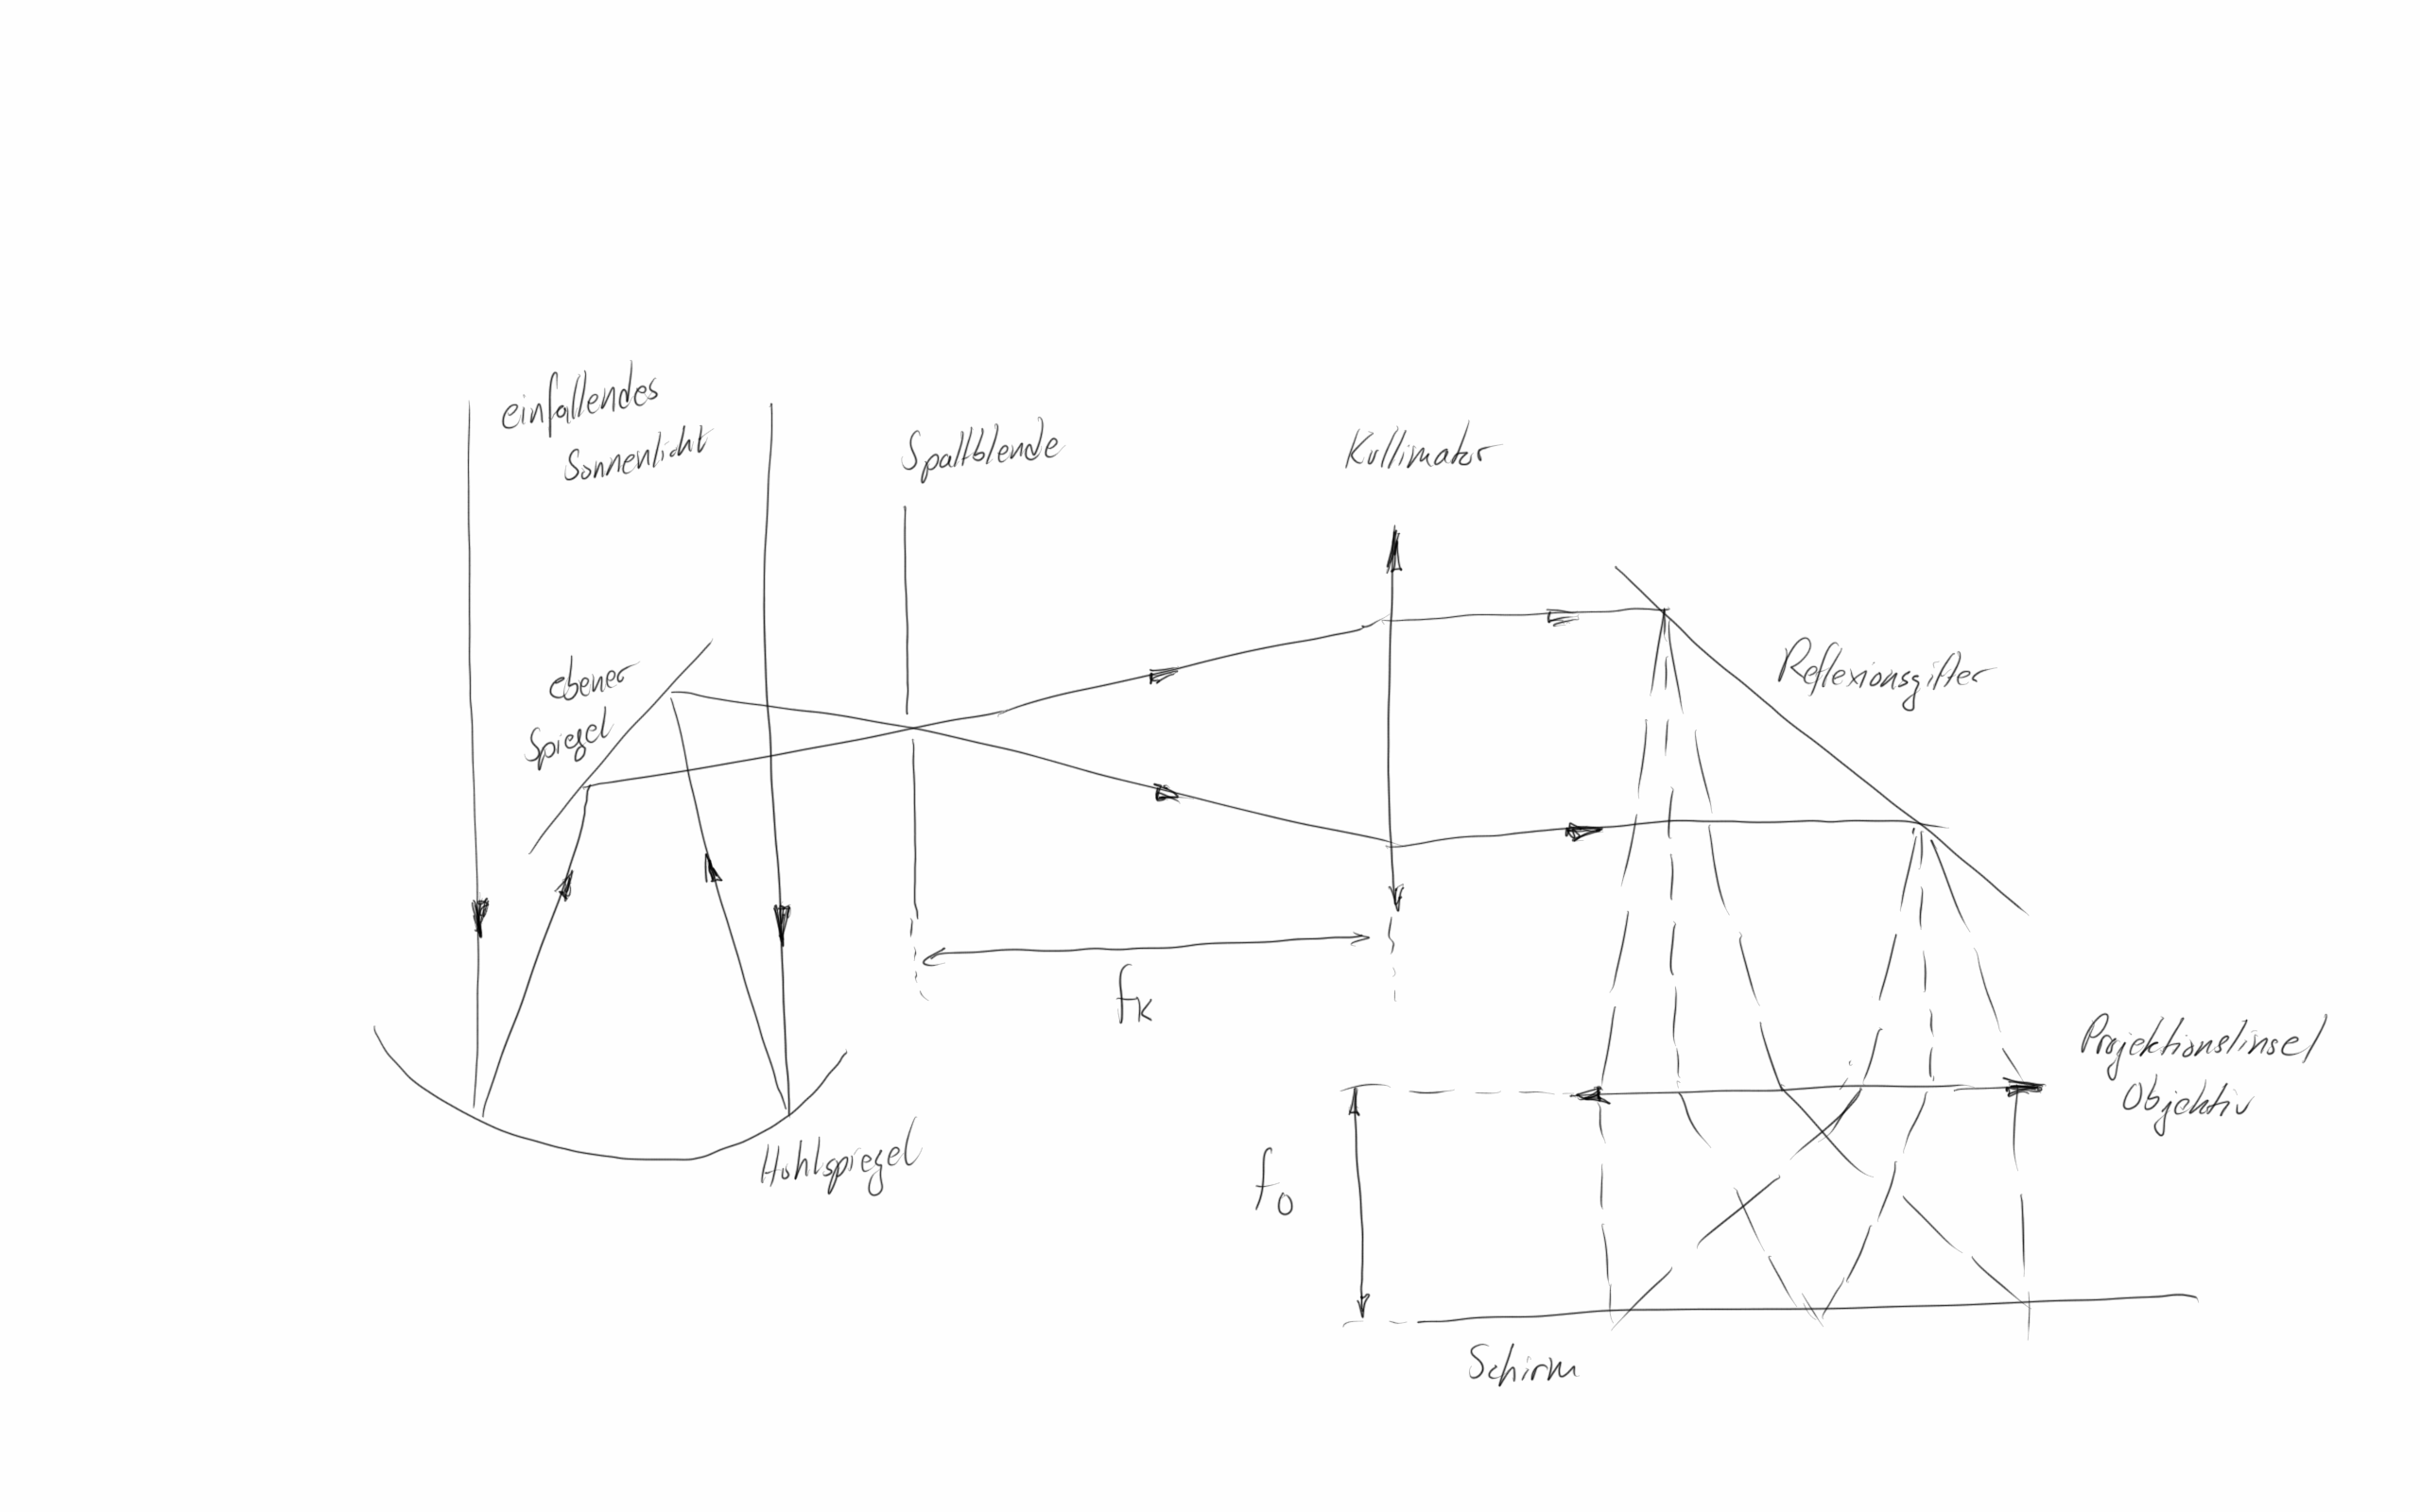 einfallendes
Sonnenlicht
Spaltblende
Kollimator
ebener
Spiegel
Reflexionsgitter
f_K
Projektionslinse/
Objektiv
Hohlspiegel
f_O
Schirm